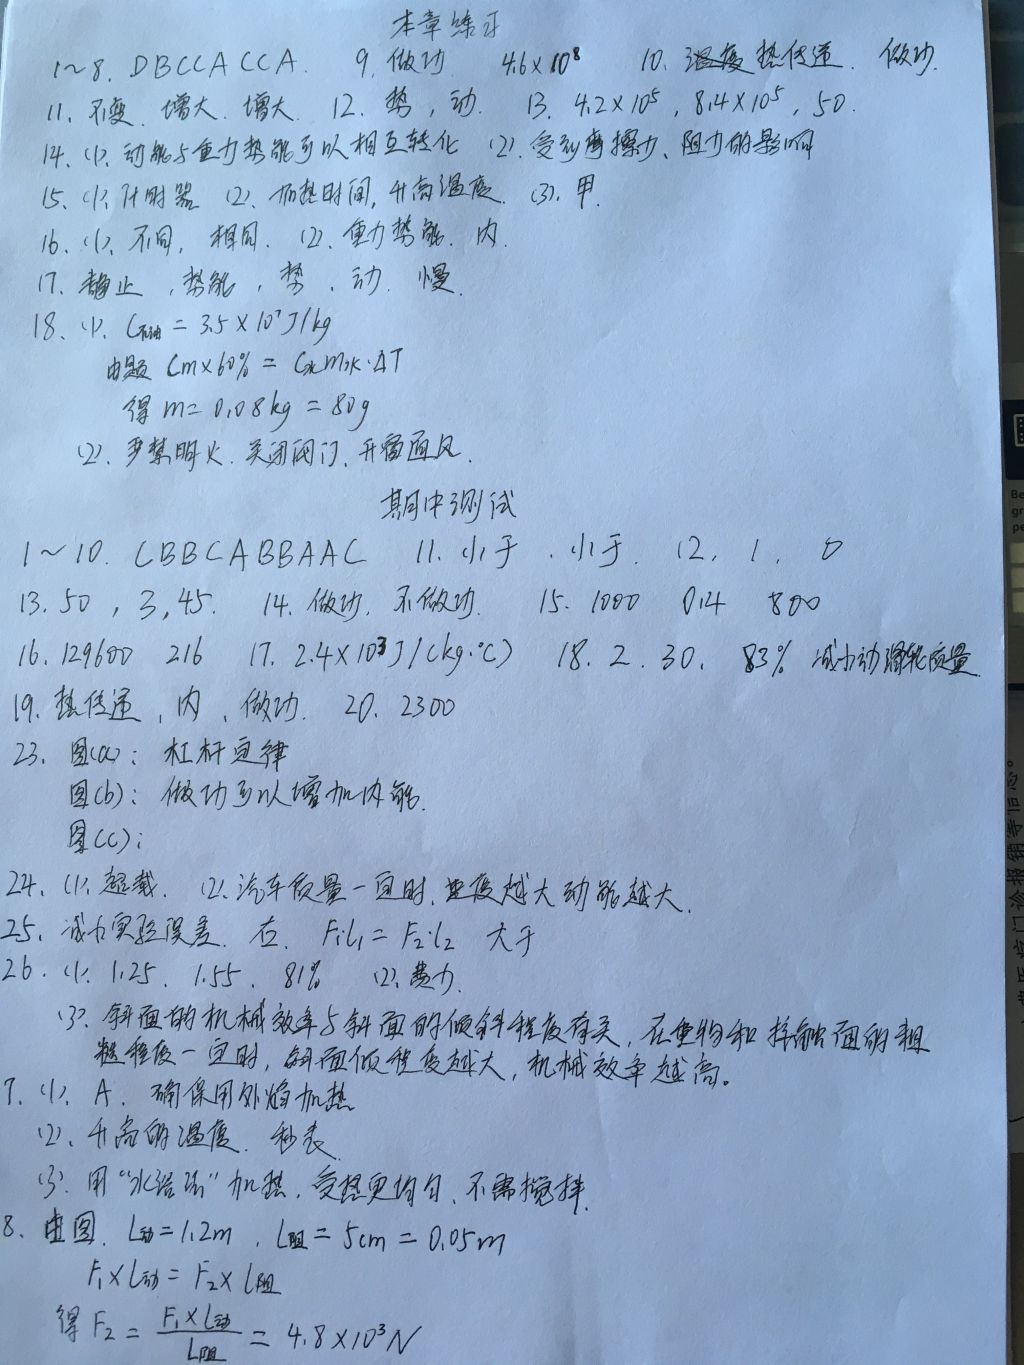 本章练习
1~8. DBCCACCA. 9. 做功 4.6×10⁸ 10. 温度 热传递. 做功.
11. 不变. 增大. 增大. 12. 势, 动. 13. 4.2×10⁵, 8.4×10⁵, 50.
14. (1). 动能与重力势能可以相互转化 (2). 受到摩擦力、阻力的影响
15. (1). 计时器 (2). 加热时间, 升高温度. (3). 甲.
16. (1). 不同, 相同. (2). 重力势能. 内.
17. 静止, 势能, 势, 动. 慢.
18. (1). = 3.5×10⁷J/kg
由题 Cm×60% = C水m水·ΔT
得 m= 0.08kg = 80g
(2). 严禁明火. 关闭阀门、开窗通风.
期中测试
1~10. CBBCABBAAC 11. 小于. 小于. 12. 1. 0
13. 50, 3, 45. 14. 做功. 不做功. 15. 1000 0.4 800
16. 129600 216 17. 2.4×10³J/(kg·℃) 18. 2. 30. 83% 减小动滑轮质量.
19. 热传递, 内, 做功. 20. 2300
23. 图(a): 杠杆定律
图(b): 做功可以增加内能.
图(c):
24. (1). 超载. (2). 汽车质量一定时, 速度越大动能越大.
25. 减小实验误差. 右. F₁·l₁ = F₂·l₂ 大于
26. (1). 1.25. 1.55. 81% (2). 费力.
(3). 斜面的机械效率与斜面的倾斜程度有关, 在重物和接触面的粗
糙程度一定时, 斜面倾程度越大, 机械效率越高。
7. (1). A. 确保用外焰加热
(2). 升高的温度. 秒表.
(3). 用“水浴法”加热, 受热更均匀、不需搅拌.
8. 由图. L动=1.2m, L阻=5cm=0.05m
F₁×L动 = F₂×L阻
得 F₂ = F₁×L动/L阻 = 4.8×10³N